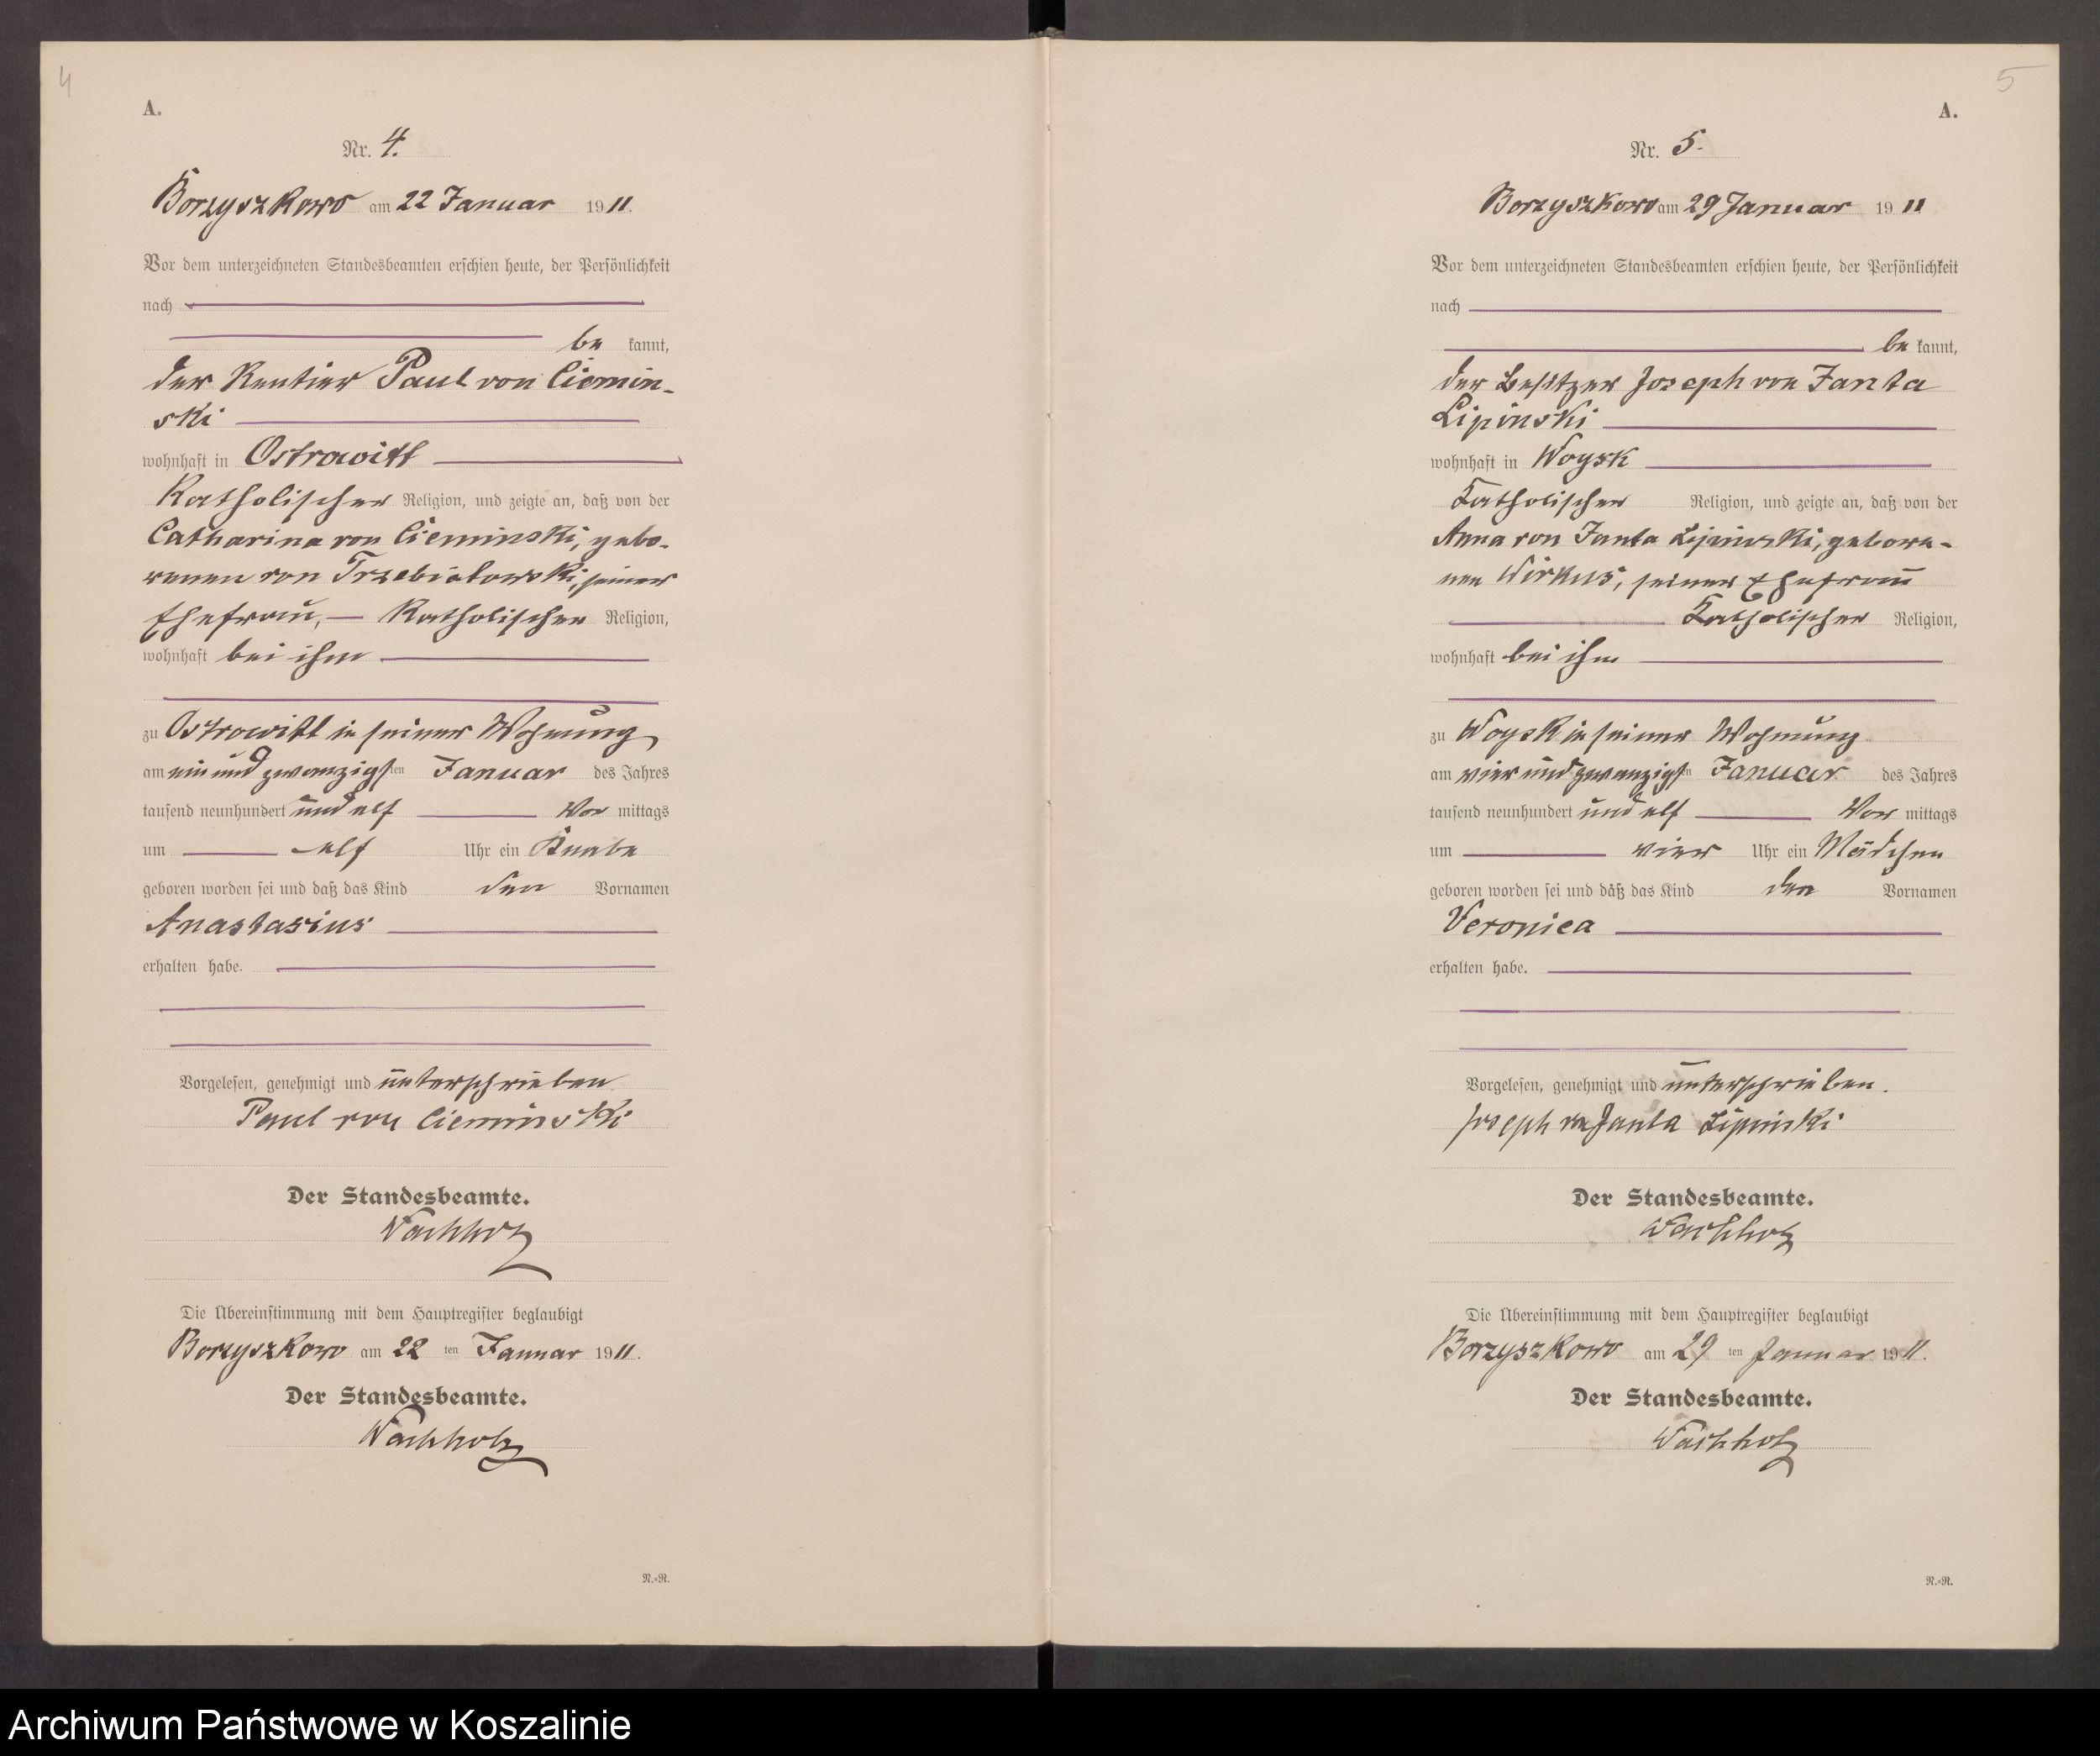 4
A.
Nr. 4.
Borzyszkowo am 22 Januar 1911.
Vor dem unterzeichneten Standesbeamten erschien heute, der Persönlichkeit
nach
be kannt,
der Rentier Paul von Ciemin-
ski
wohnhaft in Ostrowitt
Katholischer Religion, und zeigte an, daß von der
Catharina von Cieminski, gebo-
renen von Trzebiatowski, seiner
Ehefrau, Katholischer Religion,
wohnhaft bei ihm
zu Ostrowitt in seiner Wohnung
am ein und zwanzigsten Januar des Jahres
tausend neunhundert und elf Vor mittags
um elf Uhr ein Knabe
geboren worden sei und daß das Kind den Vornamen
Anastasius
erhalten habe.
Vorgelesen, genehmigt und unterschrieben
Paul von Cieminski
Der Standesbeamte.
Wachholz
Die Übereinstimmung mit dem Hauptregister beglaubigt
Borzyszkowo am 22 ten Januar 1911.
Der Standesbeamte.
Wachholz
N.=R.
5
A.
Nr. 5.
Borzyszkowo am 29 Januar 1911
Vor dem unterzeichneten Standesbeamten erschien heute, der Persönlichkeit
nach
be kannt,
der Besitzer Joseph von Janta
Lipinski
wohnhaft in Woysk
Katholischer Religion, und zeigte an, daß von der
Anna von Janta Lipinski, gebore-
nen Wirkus, seiner Ehefrau
Katholischer Religion,
wohnhaft bei ihm
zu Woysk in seiner Wohnung
am vier und zwanzigsten Januar des Jahres
tausend neunhundert und elf Vor mittags
um vier Uhr ein Mädchen
geboren worden sei und daß das Kind den Vornamen
Veronica
erhalten habe.
Vorgelesen, genehmigt und unterschrieben.
Joseph von Janta Lipinski
Der Standesbeamte.
Wachholz
Die Übereinstimmung mit dem Hauptregister beglaubigt
Borzyszkowo am 29 ten Januar 1911.
Der Standesbeamte.
Wachholz
N.=R.
Archiwum Państwowe w Koszalinie